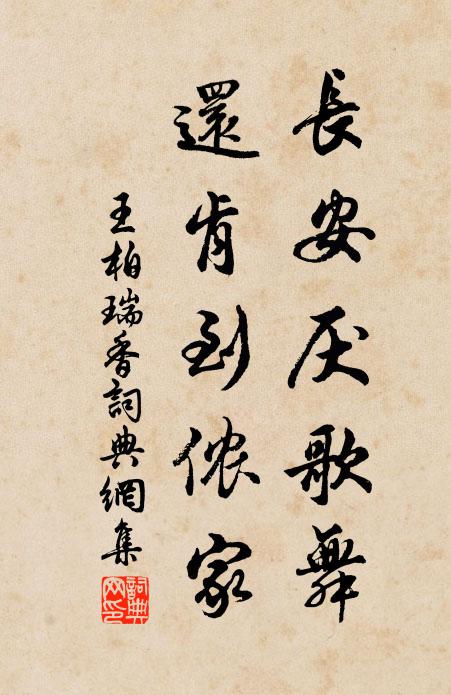 長安厌歌舞
還肯到侬家
王柏瑞香詞典網集
詞典
网印